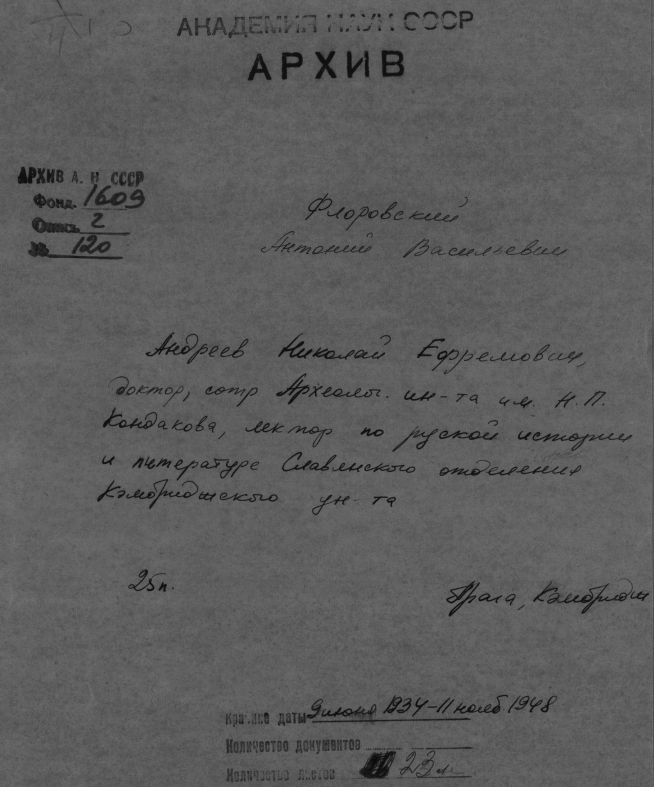 АКАДЕМИЯ НАУК СССР
АРХИВ
АРХИВ А. Н. СССР
Фонд. 1609
Опись 2
№ 120
Флоровский
Антоний Васильевич
Андреев Николай Ефремович,
доктор, сотр Археолог. ин-та им. Н.П.
Кондакова, лектор по руской истории
и литературе Славянского отделения
Кэмбриджского ун-та
25п.
Прага, Кэмбридж
Крайние даты 9 июня 1934-11 нояб 1948
Количество документов
Количество листов 23 л